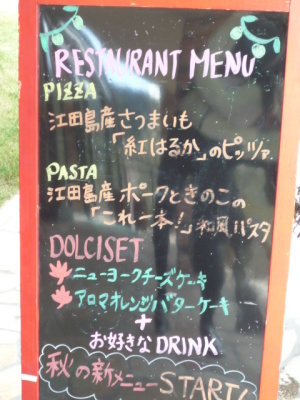 RESTAURANT MENU
PIZZA
江田島産さつまいも
「紅はるか」のピッツァ
PASTA
江田島産ポークときのこの
「これ一本!」和風パスタ
DOLCISET
ニューヨークチーズケーキ
アロマオレンジバターケーキ
+
お好きなDRINK
秋の新メニューSTART!